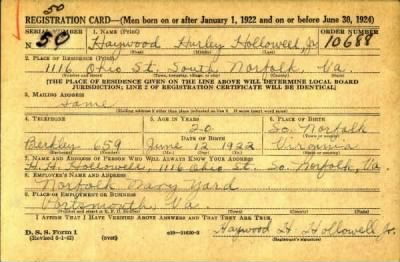 50
REGISTRATION CARD—(Men born on or after January 1, 1922 and on or before June 30, 1924)
SERIAL NUMBER 1. NAME (Print) ORDER NUMBER
50 Haywood Hurley Hollowell, Jr. 10688
2. PLACE OF RESIDENCE (Print)
1116 Ohio St. South Norfolk, Va.
[THE PLACE OF RESIDENCE GIVEN ON THE LINE ABOVE WILL DETERMINE LOCAL BOARD
JURISDICTION; LINE 2 OF REGISTRATION CERTIFICATE WILL BE IDENTICAL]
3. MAILING ADDRESS
Same
[Mailing address if other than place indicated on line 2. If same insert word same]
4. TELEPHONE 5. AGE IN YEARS 6. PLACE OF BIRTH
20 So. Norfolk
DATE OF BIRTH
Berkley 659 June 12 1922 Virginia
7. NAME AND ADDRESS OF PERSON WHO WILL ALWAYS KNOW YOUR ADDRESS
H. H. Hollowell, 1116 Ohio St. So. Norfolk, Va.
8. EMPLOYER'S NAME AND ADDRESS
Norfolk Navy Yard
9. PLACE OF EMPLOYMENT OR BUSINESS
Portsmouth, Va.
I AFFIRM THAT I HAVE VERIFIED ABOVE ANSWERS AND THAT THEY ARE TRUE.
D. S. S. Form 1
(Revised 6-1-42) (over) Haywood H. Hollowell Jr.
(Registrant's signature)